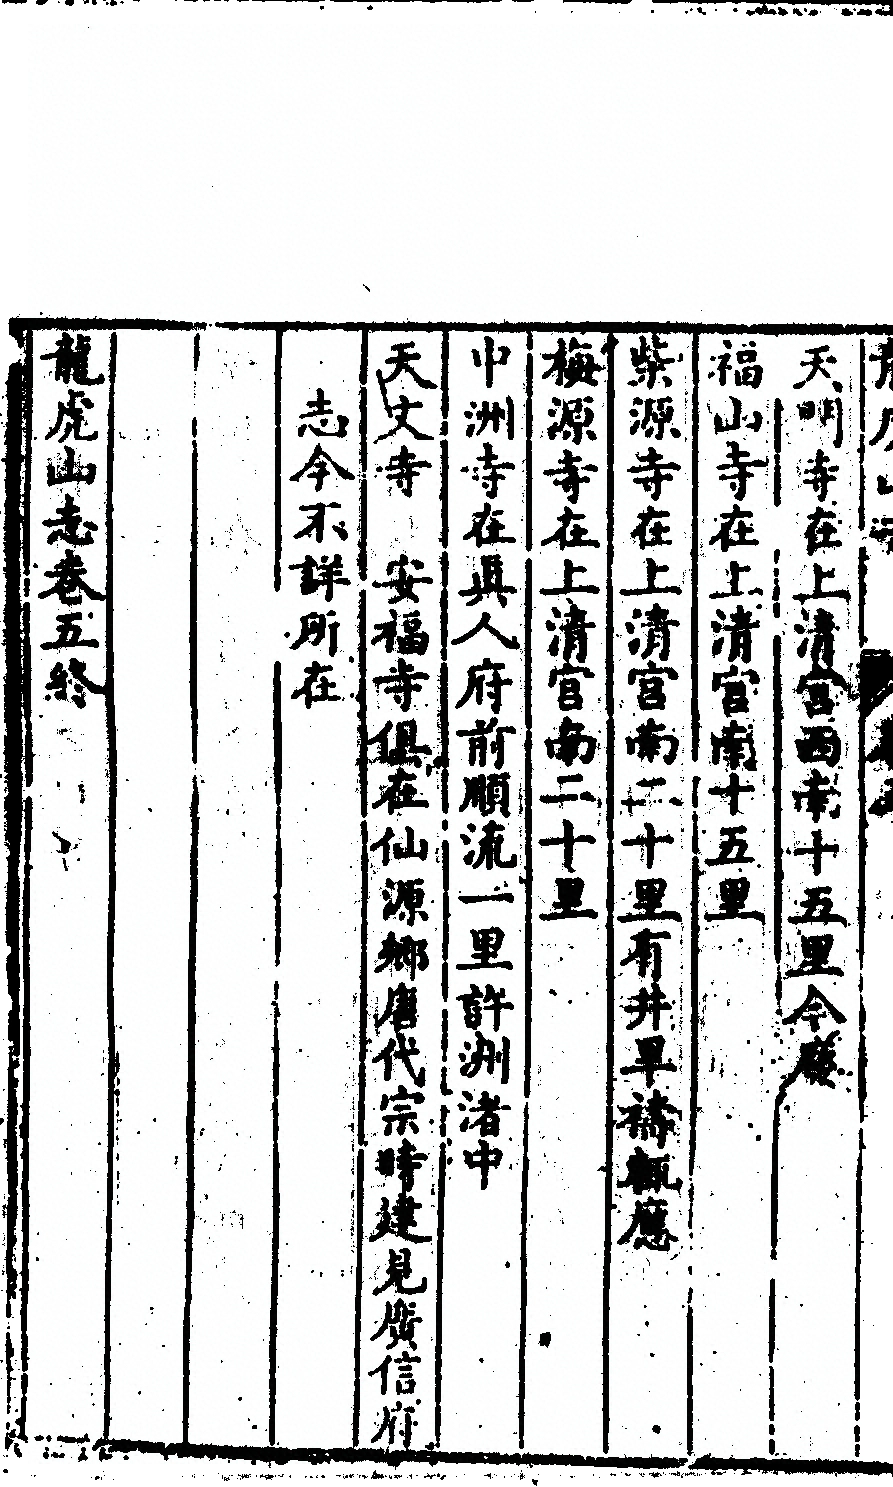 天明寺在上清宮西南十五里今廢
福山寺在上清宮南十五里
紫源寺在上清宮南二十里有井旱禱輒應
梅源寺在上清宮南二十里
中洲寺在眞人府前順流一里許洲渚中
天丈寺　安福寺俱在仙源鄉唐代宗時建見廣信府
志今不詳所在
龍虎山志卷五終